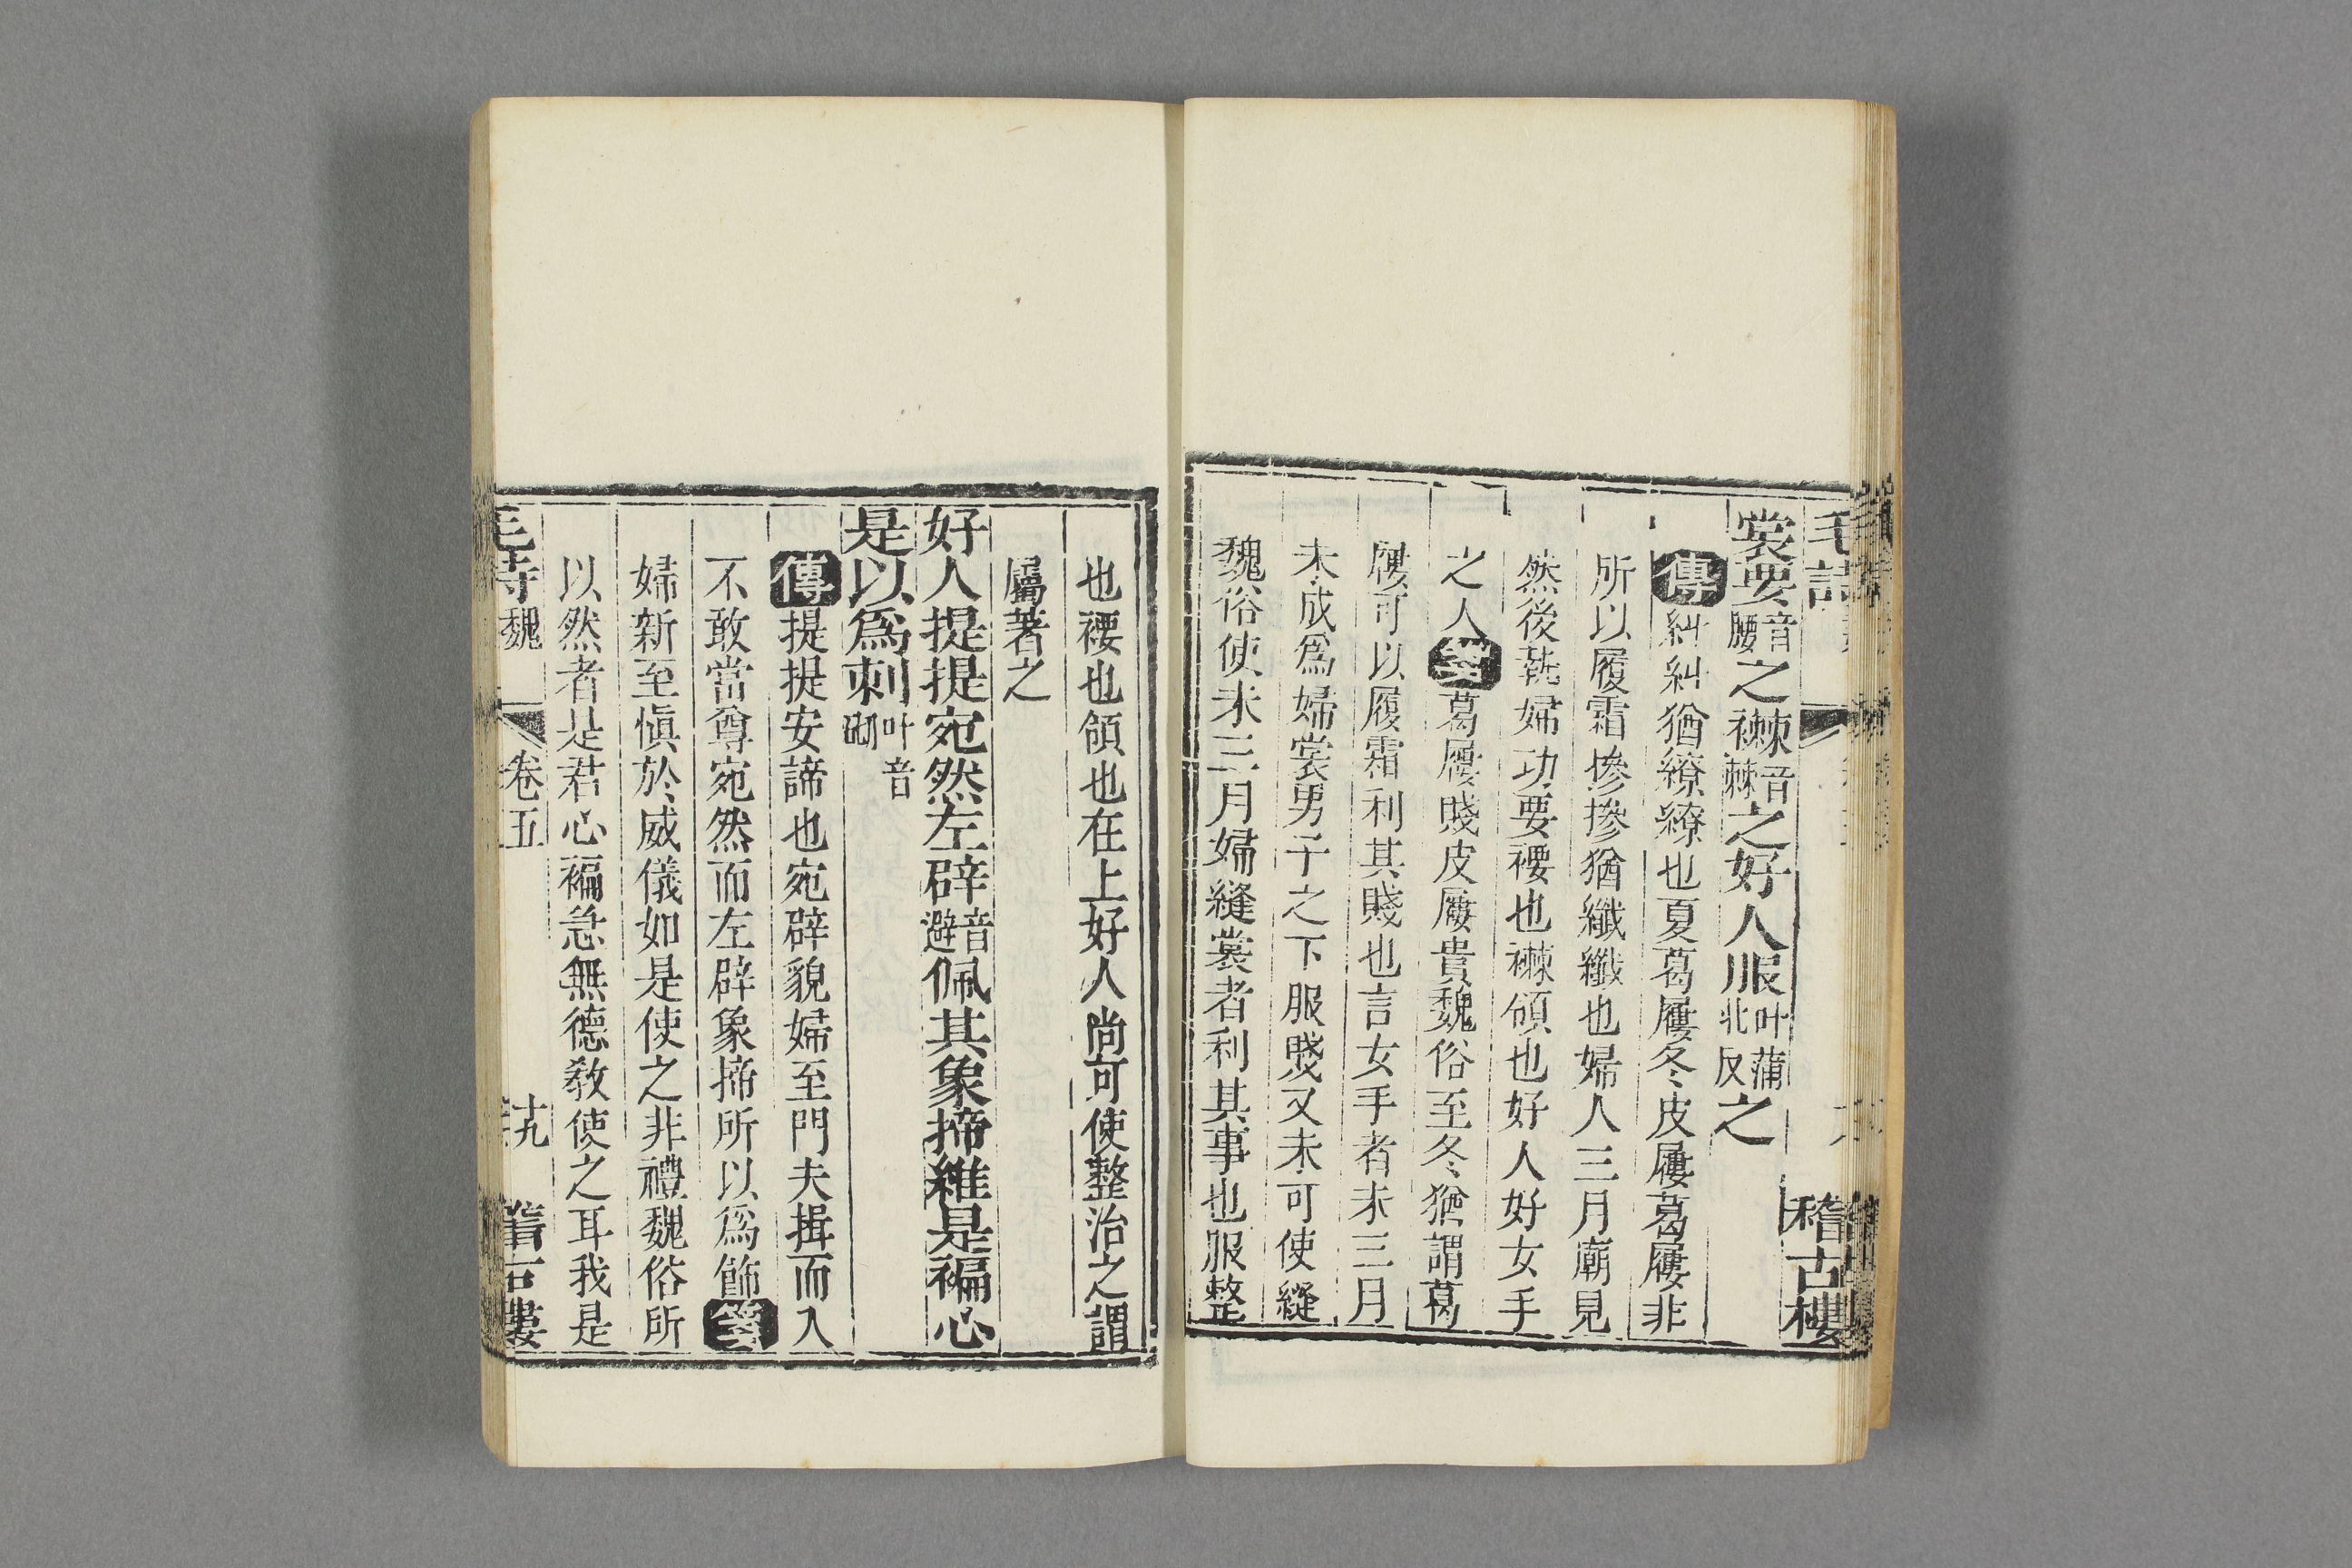 毛詩
稽古樓
裳要音腰之襋音棘之好人服叶蒲北反之
傳糾糾猶繚繚也夏葛屨冬皮屨葛屨非
所以履霜摻摻猶纖纖也婦人三月廟見
然後執婦功要褄也襋領也好人好女手
之人箋葛屨賤皮屨貴魏俗至冬猶謂葛
屨可以履霜利其賤也言女手者未三月
未成爲婦裳男子之下服賤又未可使縫
魏俗使未三月婦縫裳者利其事也服整
也褄也領也在上好人尚可使整治之謂
屬著之
好人提提宛然左辟音避佩其象揥維是褊心
是以爲刺叶音砌
傳提提安諦也宛辟貌婦至門夫揖而入
不敢當尊宛然而左辟象揥所以爲飾箋
婦新至愼於威儀如是使之非禮魏俗所
以然者是君心褊急無德教使之耳我是
毛詩 魏 卷五 十九 稽古樓